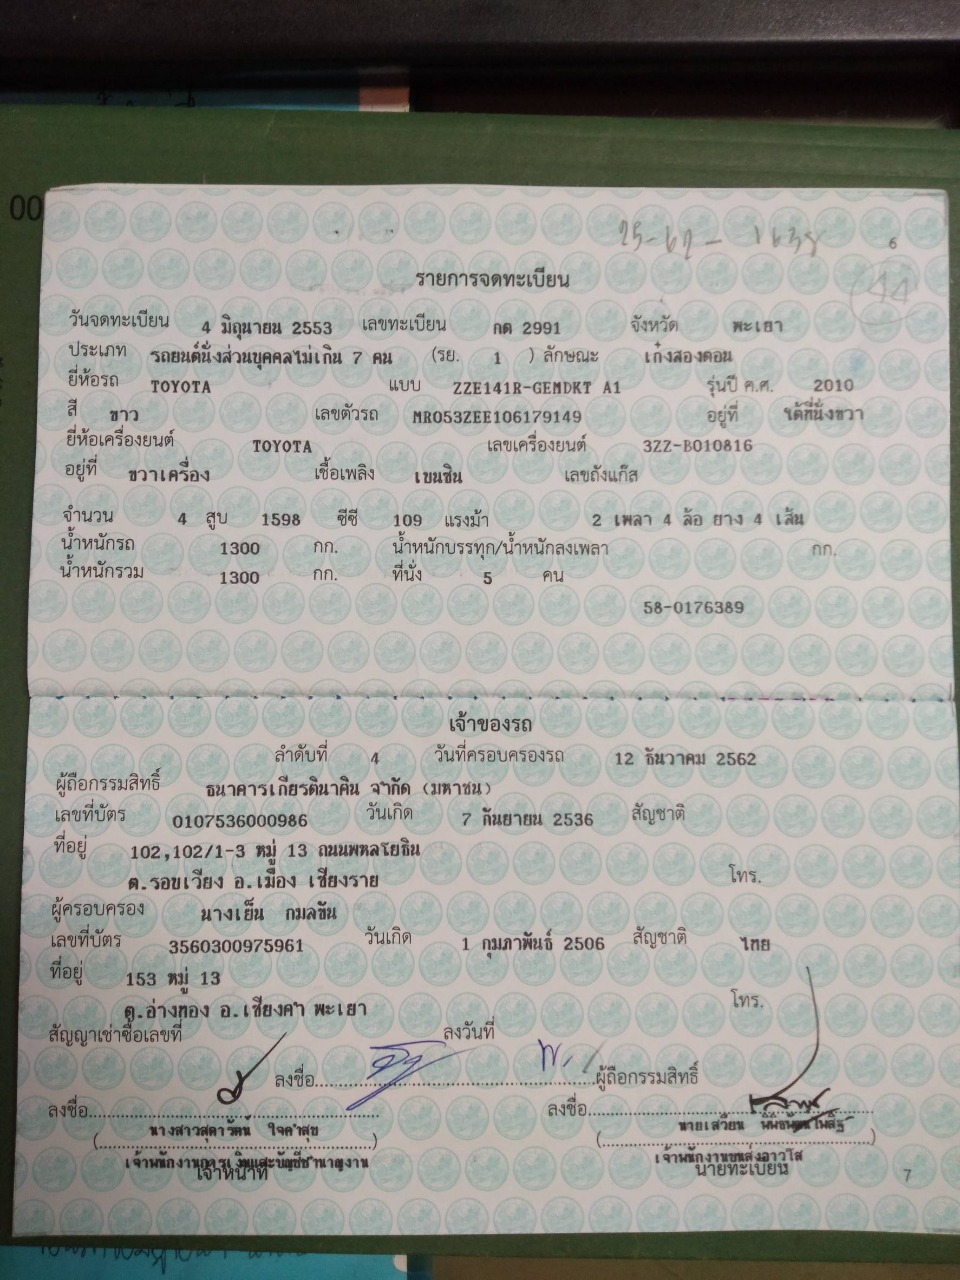 00
25-62-1638
6
44
รายการจดทะเบียน
วันจดทะเบียน 4 มิถุนายน 2553 เลขทะเบียน กต 2991 จังหวัด พะเยา
ประเภท รถยนต์นั่งส่วนบุคคลไม่เกิน 7 คน (รย. 1 ) ลักษณะ เก๋งสองตอน
ยี่ห้อรถ TOYOTA แบบ ZZE141R-GEMDKT A1 รุ่นปี ค.ศ. 2010
สี ขาว เลขตัวรถ MR053ZEE106179149 อยู่ที่ ใต้ที่นั่งขวา
ยี่ห้อเครื่องยนต์ TOYOTA เลขเครื่องยนต์ 3ZZ-B010816
อยู่ที่ ขวาเครื่อง เชื้อเพลิง เบนซิน เลขถังแก๊ส
จำนวน 4 สูบ 1598 ซีซี 109 แรงม้า 2 เพลา 4 ล้อ ยาง 4 เส้น
น้ำหนักรถ 1300 กก. น้ำหนักบรรทุก/น้ำหนักลงเพลา กก.
น้ำหนักรวม 1300 กก. ที่นั่ง 5 คน
58-0176389
เจ้าของรถ
ลำดับที่ 4 วันที่ครอบครองรถ 12 ธันวาคม 2562
ผู้ถือกรรมสิทธิ์ ธนาคารเกียรตินาคิน จำกัด (มหาชน)
เลขที่บัตร 0107536000986 วันเกิด 7 กันยายน 2536 สัญชาติ
ที่อยู่ 102,102/1-3 หมู่ 13 ถนนพหลโยธิน
ต.รอบเวียง อ.เมือง เชียงราย โทร.
ผู้ครอบครอง นางเย็น กมลขัน
เลขที่บัตร 3560300975961 วันเกิด 1 กุมภาพันธ์ 2506 สัญชาติ ไทย
ที่อยู่ 153 หมู่ 13
ต.อ่างทอง อ.เชียงคำ พะเยา โทร.
สัญญาเช่าซื้อเลขที่ ลงวันที่
ลงชื่อ ผู้ถือกรรมสิทธิ์
ลงชื่อ ลงชื่อ
(นางสาวสุดารัตน์ ใจคำสุข) (นายเสวียน)
เจ้าพนักงานการเงินและบัญชีชำนาญงาน เจ้าพนักงานขนส่งอาวุโส
เจ้าหน้าที่ นายทะเบียน 7